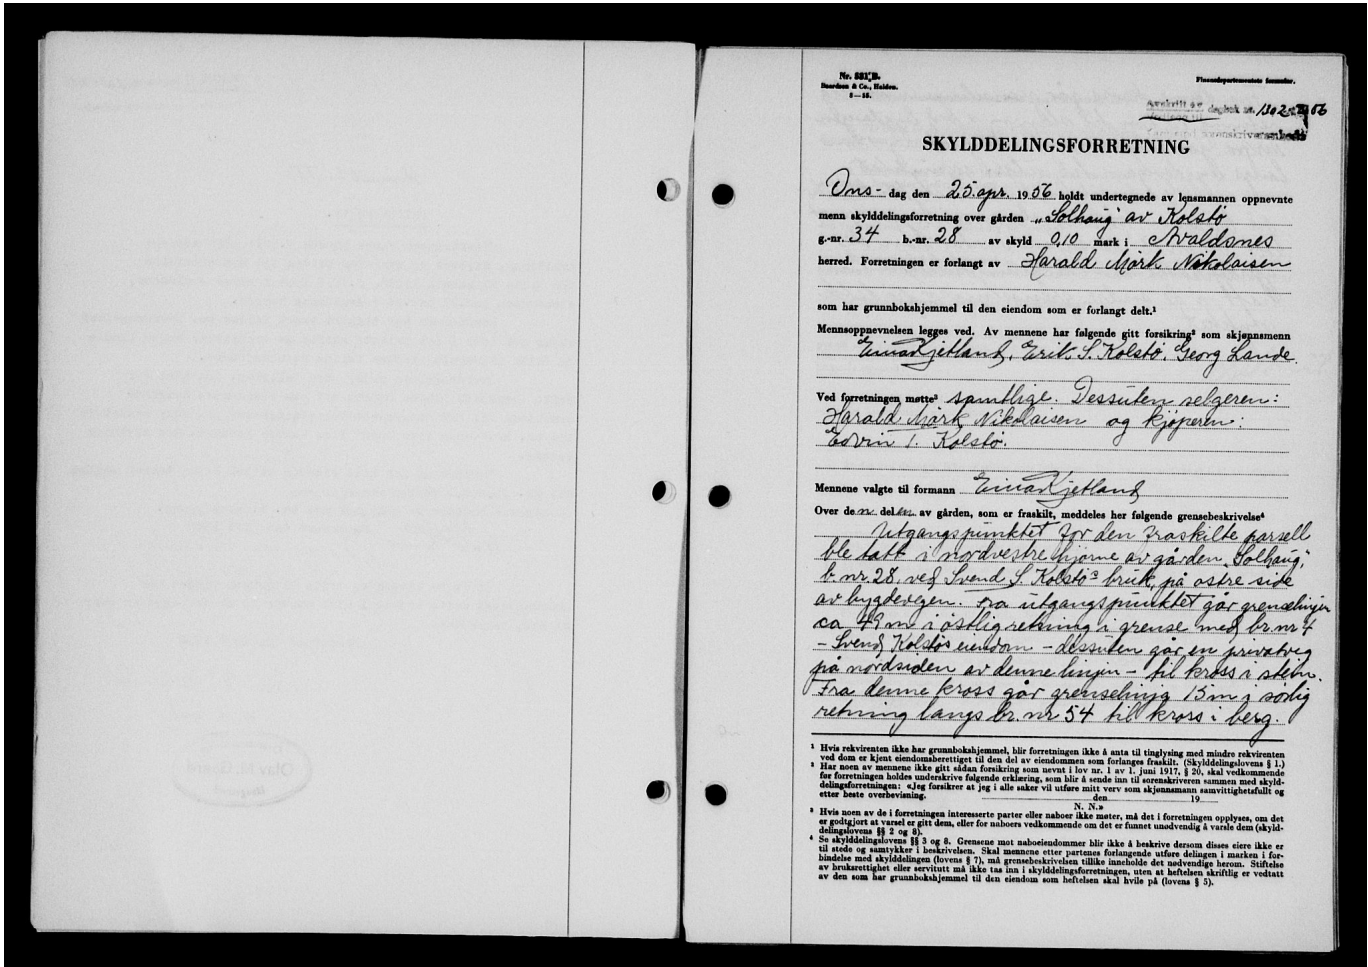 Nr. 531 B.
Baardsen & Co., Halden.
Finansdepartementets formular.
Avskrift av dagbok nr. 1302 1956
SKYLDDELINGSFORRETNING
Ons- dag den 25. apr. 1956 holdt undertegnede av lensmannen oppnevnte
menn skylddelingsforretning over gården „Solhaug" av Kolstø
g.-nr. 34 b.-nr. 28 av skyld 0,10 mark i Avaldsnes
herred. Forretningen er forlangt av Harald Mørk Nikolaisen
som har grunnbokshjemmel til den eiendom som er forlangt delt.¹
Mennsoppnevnelsen legges ved. Av mennene har følgende gitt forsikring² som skjønnsmenn
Einar Kjetland, Erik S. Kolstø, Georg Lande.
Ved forretningen møtte³ samtlige. Dessuten selgeren:
Harald Mørk Nikolaisen og kjøperen:
Edvin I. Kolstø.
Mennene valgte til formann Einar Kjetland
Over den delen av gården, som er fraskilt, meddeles her følgende grensebeskrivelse⁴
Utgangspunktet for den fraskilte parsell
ble tatt i nordvestre hjørne av gården „Solhaug",
b.nr. 28, ved Svend S Kolstøs bruk, på østre side
av bygdevegen. Fra utgangspunktet går grenselinjen
ca 49 m i østlig retning i grense med br.nr 4
- Svend Kolstøs eiendom - dessuten går en privatveg
på nordsiden av denne linjen - til kross i stein.
Fra denne kross går grenselinja 15 m i sørlig
retning langs br. nr 54 til kross i berg.
¹ Hvis rekvirenten ikke har grunnbokshjemmel, blir forretningen ikke å anta til tinglysing med mindre rekvirenten
ved dom er kjent eiendomsberettiget til den del av eiendommen som forlanges fraskilt. (Skylddelingslovens § 1.)
² Har noen av mennene ikke gitt sådan forsikring som nevnt i lov nr. 1 av 1. juni 1917, § 20, skal vedkommende
før forretningen holdes underskrive følgende erklæring, som blir å sende inn til sorenskriveren sammen med skyld-
delingsforretningen: «Jeg forsikrer at jeg i alle saker vil utføre mitt verv som skjønnsmann samvittighetsfullt og
etter beste overbevisning. den 19
N. N.»
³ Hvis noen av de i forretningen interesserte parter eller naboer ikke møter, må det i forretningen opplyses, om det
er godtgjort at varsel er gitt dem, eller for naboers vedkommende om det er funnet unødvendig å varsle dem (skyld-
delingslovens §§ 2 og 8).
⁴ Se skylddelingslovens §§ 3 og 8. Grensene mot naboeiendommer blir ikke å beskrive dersom disses eiere ikke er
til stede og samtykker i beskrivelsen. Skal mennene etter partenes forlangende utføre delingen i marken i for-
bindelse med skylddelingen (lovens § 7), må grensebeskrivelsen tillike inneholde det nødvendige herom. Stiftelse
av bruksrettighet eller servitutt må ikke tas inn i skylddelingsforretningen, uten at heftelsen skriftlig er vedtatt
av den som har grunnbokshjemmel til den eiendom som heftelsen skal hvile på (lovens § 5).